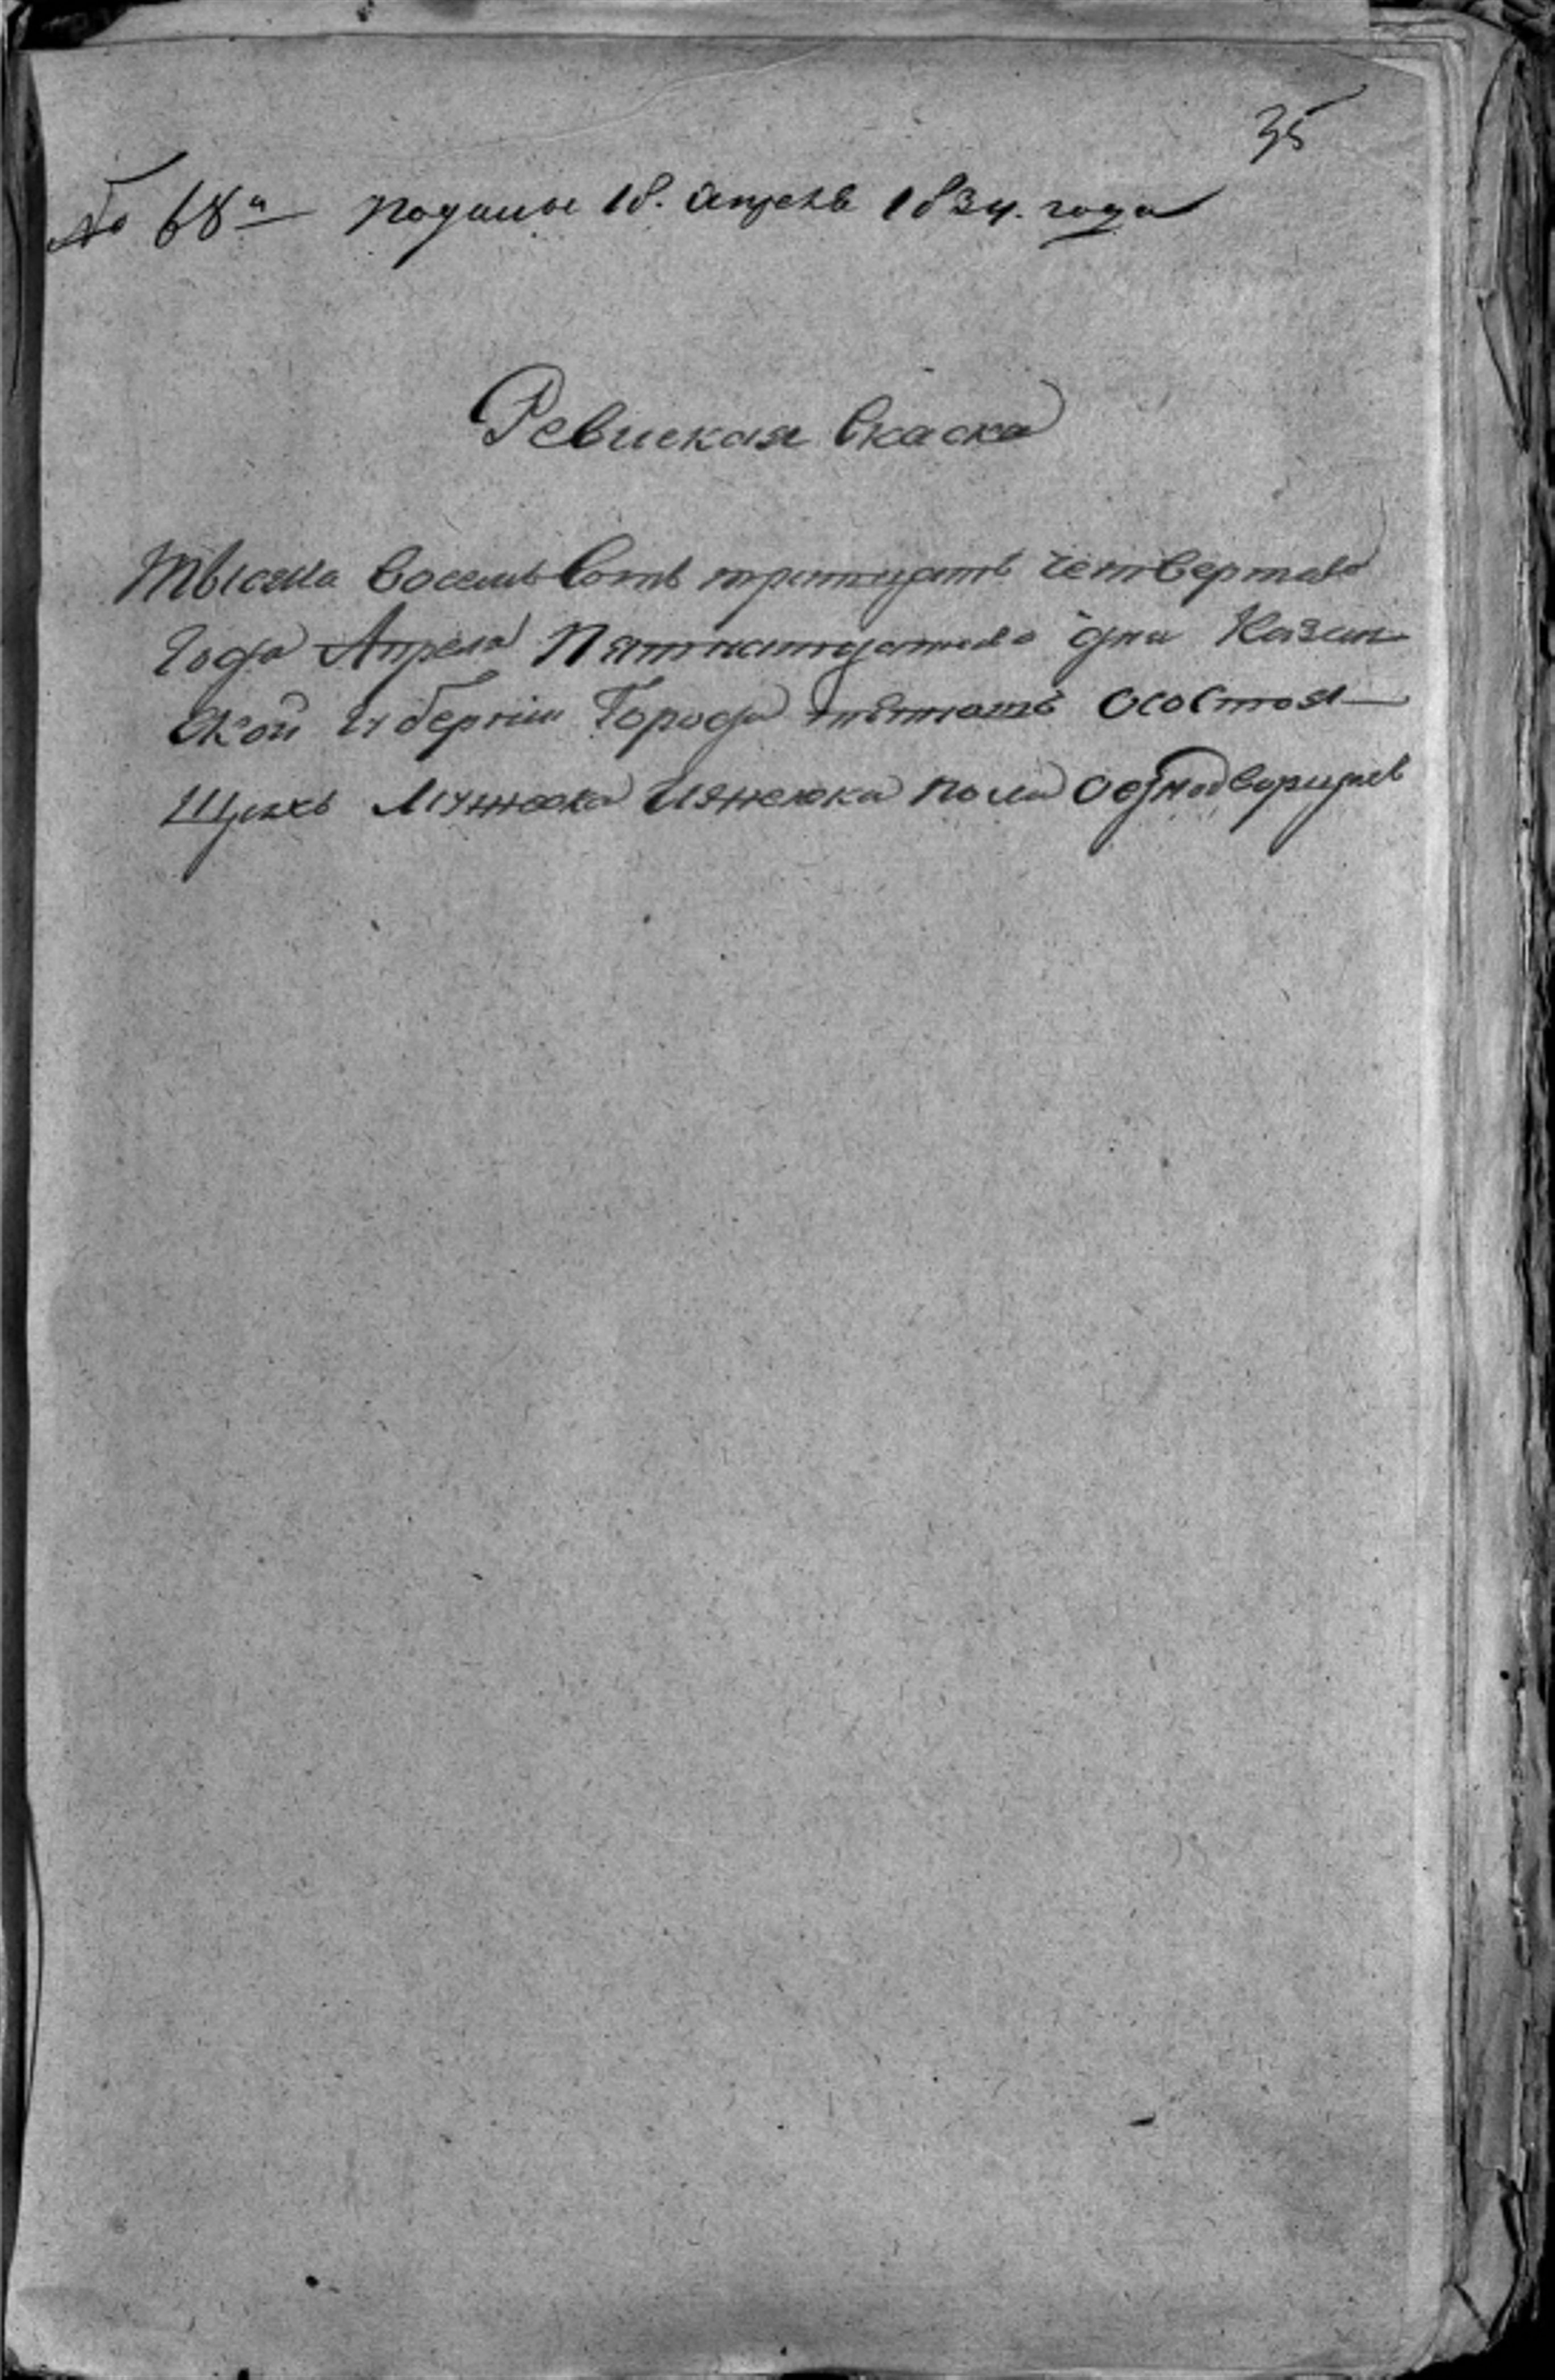 35
№ 68й поданы 18. апреля 1834. года
Ревиская Скаска
Тысяча восемь Сотъ тритцать четвертаго
Года Апреля Пятнатцатаго дня Казан
ской губернии Города тетюшъ осостоя
Щихъ Мужеска Иженска пола однодворцахъ